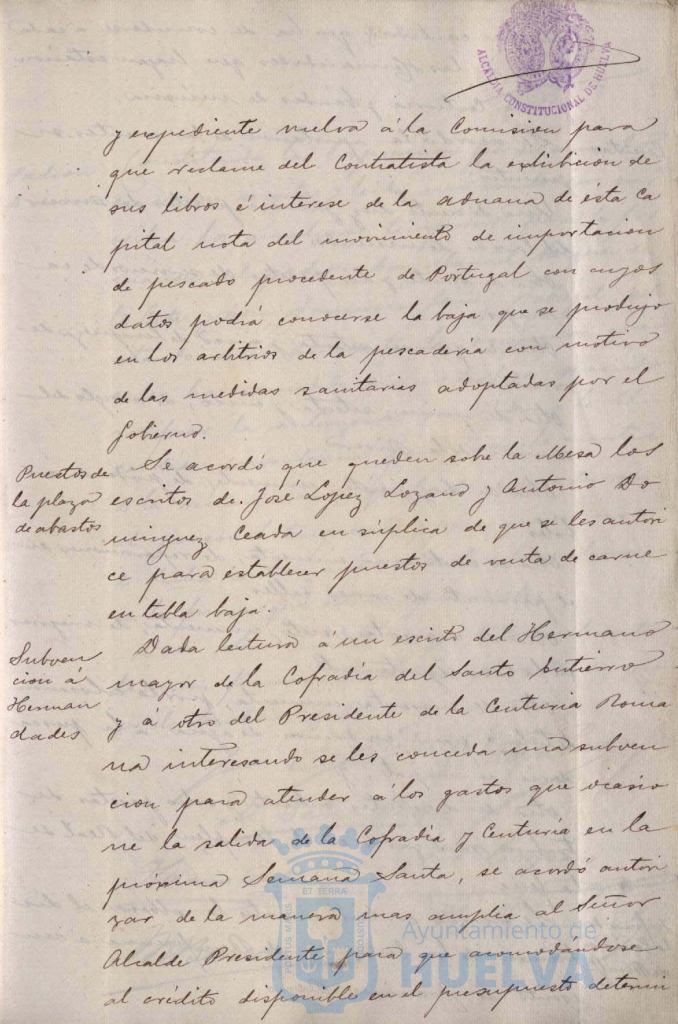 ALCALDIA CONSTITUCIONAL DE HUELVA
y expediente vuelva á la Comision para
que reclame del Contratista la exhibicion de
sus libros é interese de la aduana de ésta Ca
pital nota del movimiento de importacion
de pescado procedente de Portugal con cuyos
datos podrá conocerse la baja que se produjo
en los arbitrios de la pescadería con motivo
de las medidas sanitarias adoptadas por el
Gobierno.
Puestos de
la plaza
de abastos
Se acordó que queden sobre la Mesa los
escritos de José Lopez Lozano y Antonio Do
minguez Ceada en súplica de que se les autori
ce para establecer puestos de venta de carne
en tabla baja.
Subven
cion á
Herman
dades
Dada lectura á un escrito del Hermano
mayor de la Cofradia del Santo Entierro
y á otro del Presidente de la Centuria Roma
na interesando se les conceda una subven
cion para atender á los gastos que ocasio
ne la salida de la Cofradia y Centuria en la
próxima Semana Santa, se acordó autori
zar de la manera mas amplia al Señor
Alcalde Presidente para que acomodándose
al crédito disponible en el presupuesto determi
PORTUS MARIS
ET TERRÆ
CUSTODIA
Ayuntamiento de
HUELVA